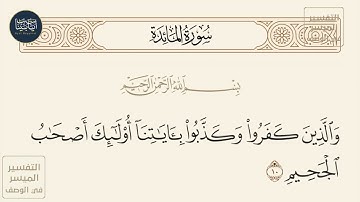 سُورَةُ المَائِدَة
التفسير
الميسر
بِسْمِ اللَّهِ الرَّحْمَٰنِ الرَّحِيمِ
وَالَّذِينَ كَفَرُوا۟ وَكَذَّبُوا۟ بِـَٔايَاتِنَآ أُو۟لَـٰٓئِكَ أَصْحَابُ
الْجَحِيمِ ١٠
التفسير
الميسر
في الوصف